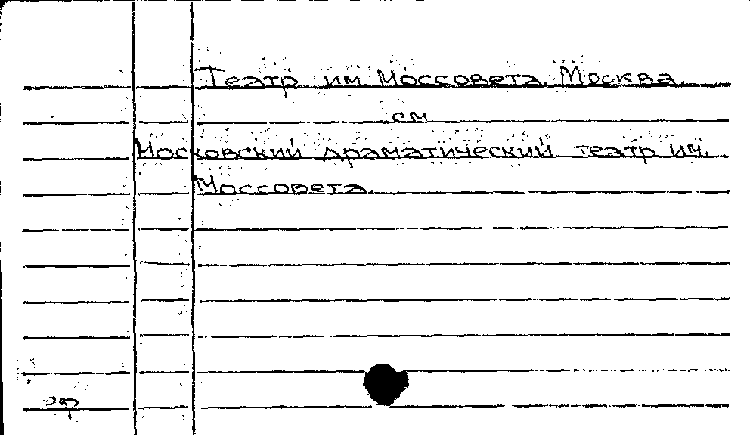 Театр им Моссовета. Москва.
см
Московский драматический театр им.
Моссовета.